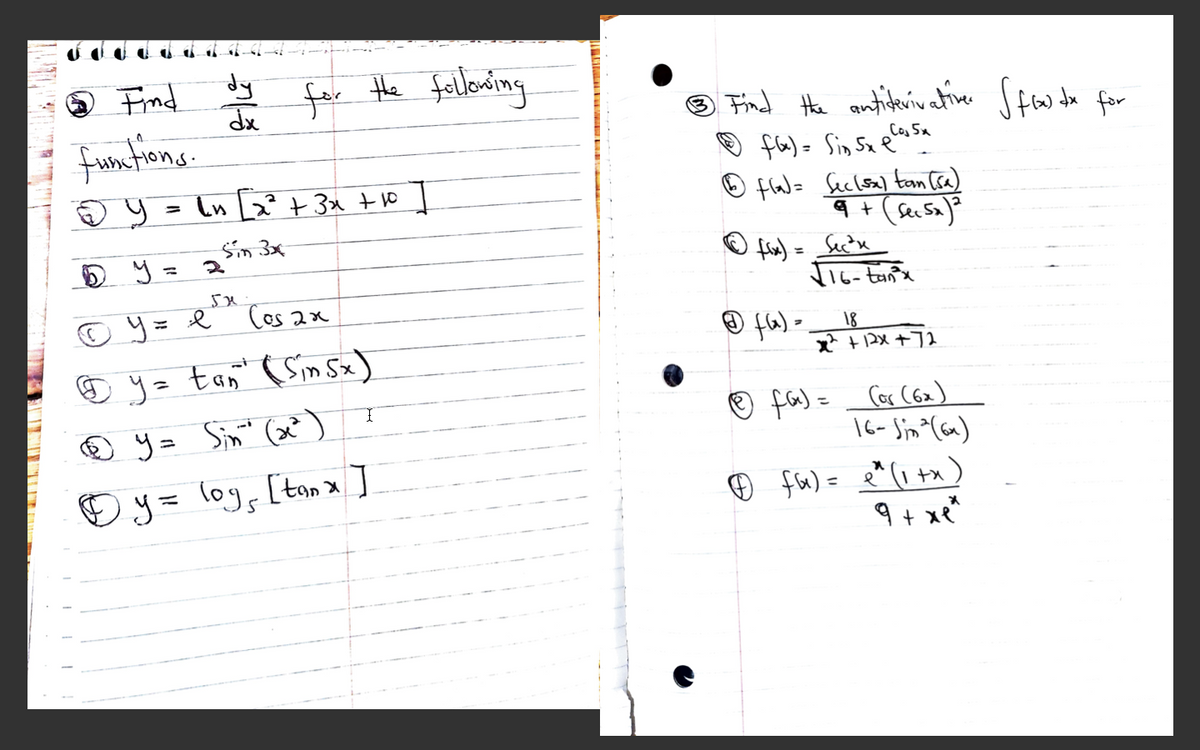 ② Find dy/dx for the following
functions.
ⓐ y = ln [x² + 3x + 10 ]
ⓑ y = 2^(sin 3x)
ⓒ y = e^(5x) Cos 2x
ⓓ y = tan⁻¹ (Sin 5x)
ⓔ y = Sin⁻¹ (x²)
ⓕ y = log₅ [tan x ]
③ Find the antiderivatives ∫ f(x) dx for
ⓐ f(x) = Sin 5x e^(Cos 5x)
ⓑ f(x) = Sec(5x) tan(5x) / 9 + (Sec 5x)²
ⓒ f(x) = Sec²x / √(16 - tan²x)
ⓓ f(x) = 18 / x² + 12x + 72
ⓔ f(x) = Cos (6x) / 16 - Sin²(6x)
ⓕ f(x) = e^x (1 + x) / 9 + xe^x